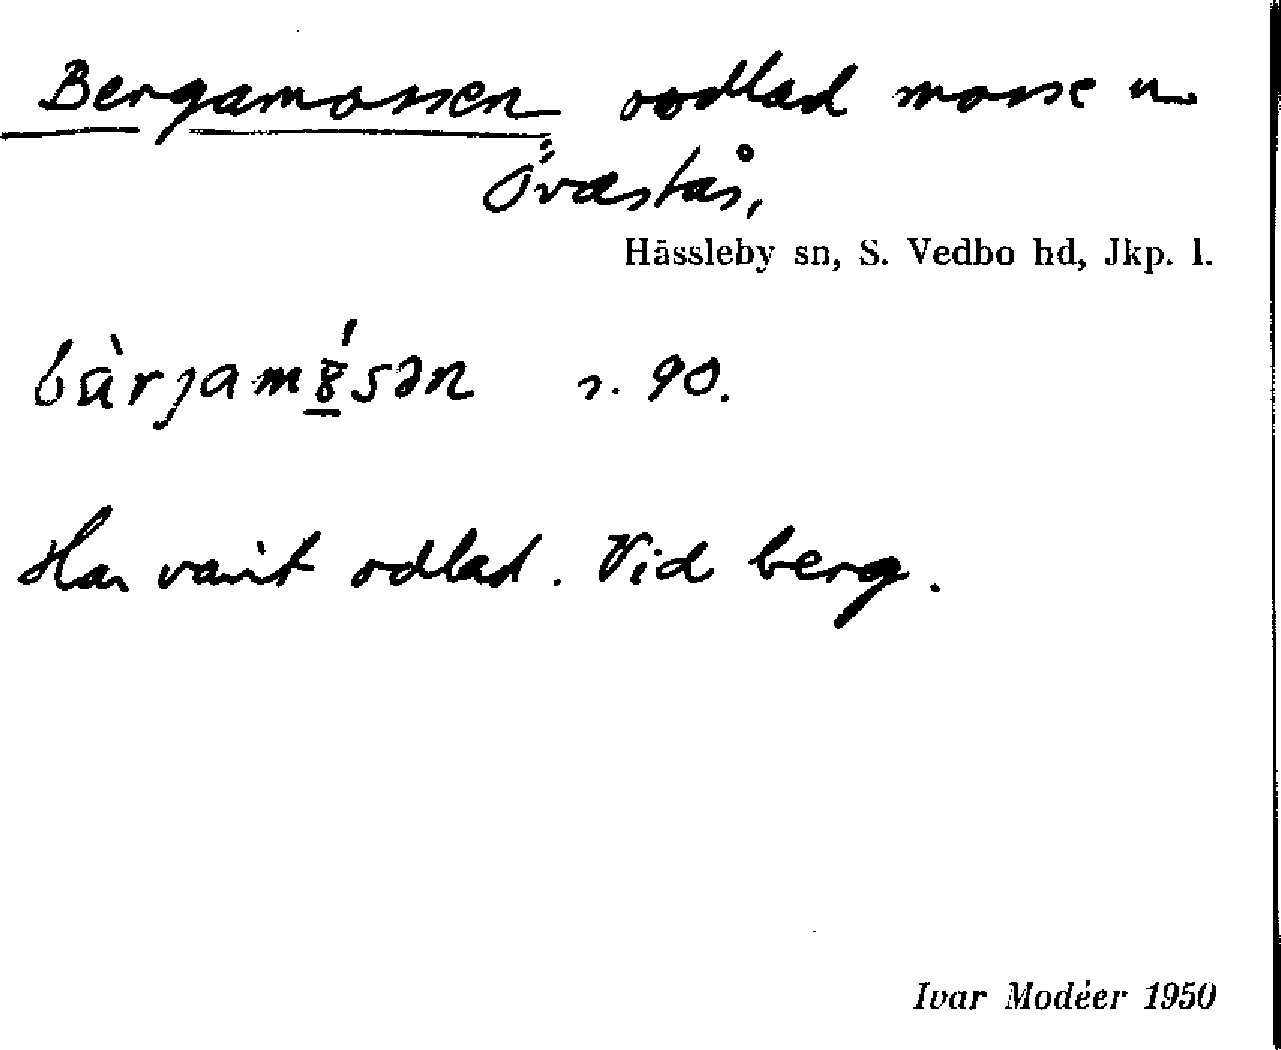 Bergamossen oodlad mosse u.
Övrastås,
Hässleby sn, S. Vedbo hd, Jkp. l.
s. 90.
Har varit odlad. Vid berg.
Ivar Modéer 1950